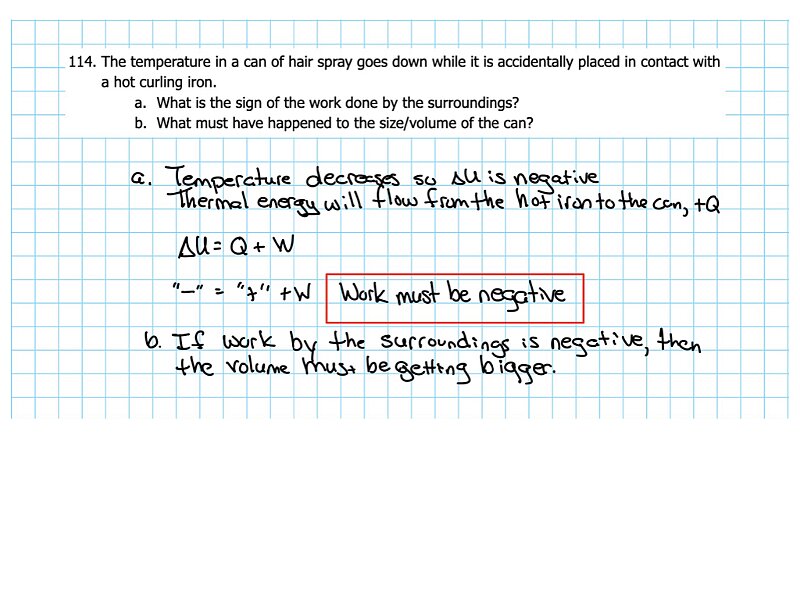 114. The temperature in a can of hair spray goes down while it is accidentally placed in contact with
a hot curling iron.
a. What is the sign of the work done by the surroundings?
b. What must have happened to the size/volume of the can?
a. Temperature decreases so ΔU is negative
Thermal energy will flow from the hot iron to the can, +Q
ΔU = Q + W
"−" = "+" + W Work must be negative
b. If work by the surroundings is negative, then
the volume must be getting bigger.